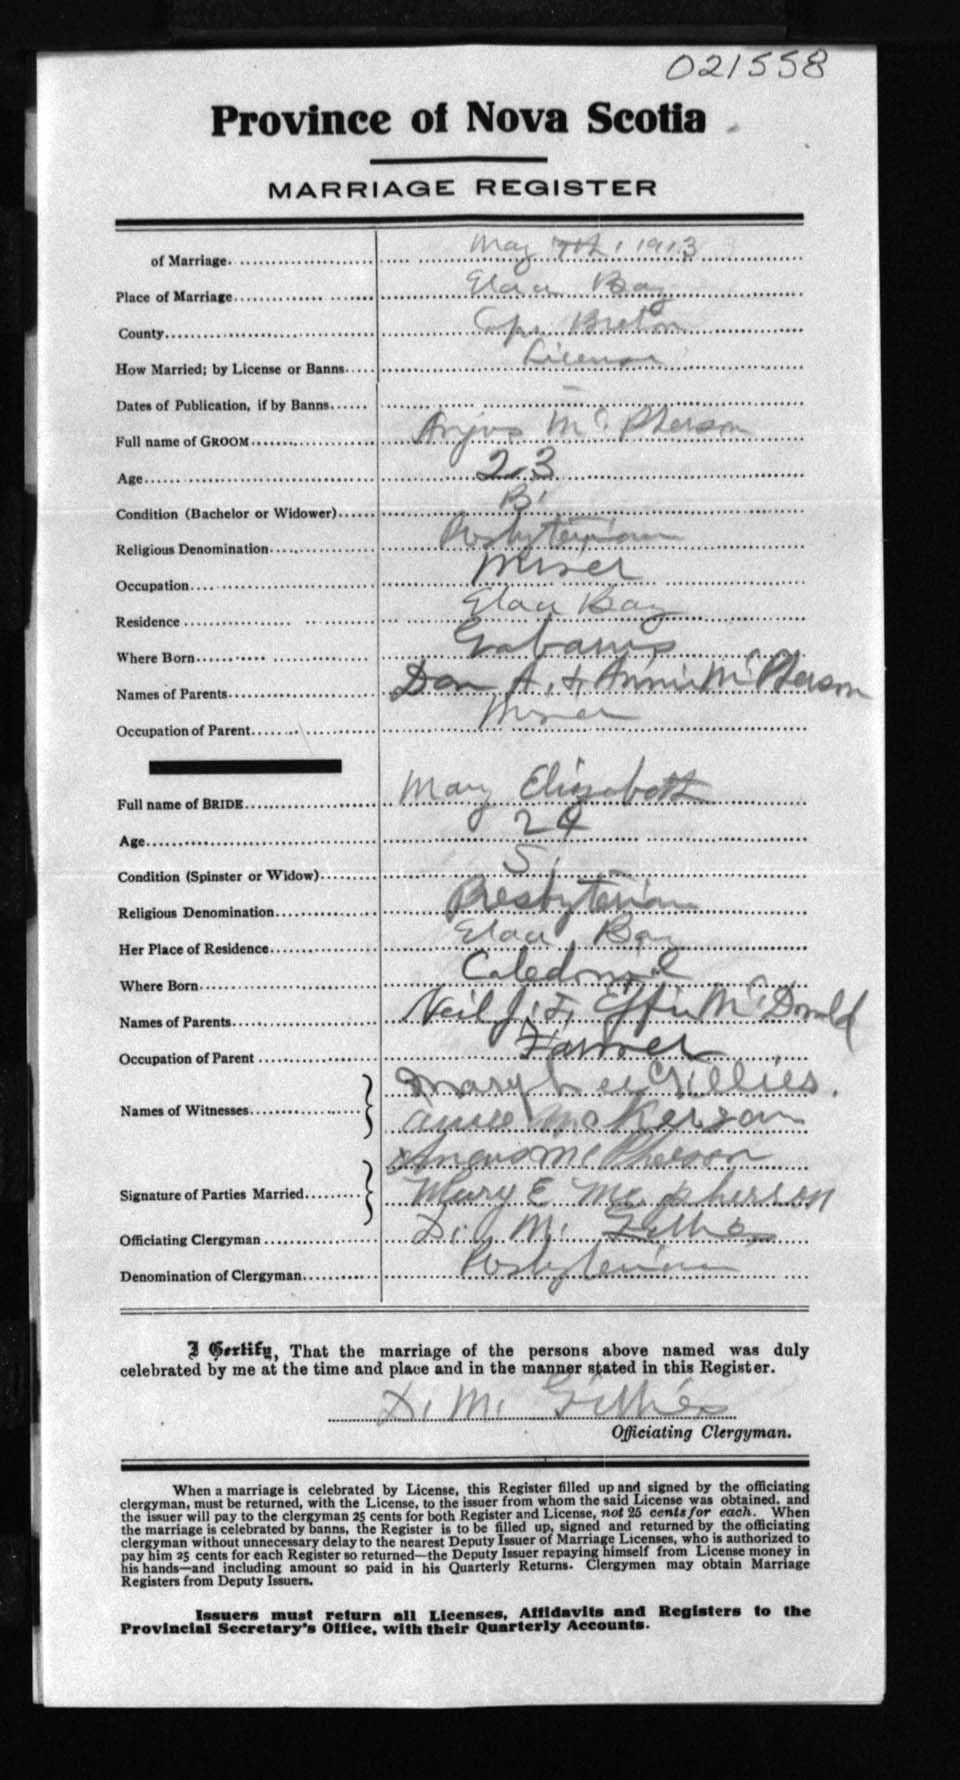 021558
Province of Nova Scotia
MARRIAGE REGISTER
of Marriage. May 7th, 1913
Place of Marriage Glace Bay
County Cape Breton
How Married; by License or Banns License
Dates of Publication, if by Banns —
Full name of GROOM Angus McPherson
Age 23
Condition (Bachelor or Widower) B.
Religious Denomination Presbyterian
Occupation Miner
Residence Glace Bay
Where Born Gabarus
Names of Parents Dan A. & Annie McPherson
Occupation of Parent Miner
Full name of BRIDE Mary Elizabeth
Age 24
Condition (Spinster or Widow) S.
Religious Denomination Presbyterian
Her Place of Residence Glace Bay
Where Born Caledonia
Names of Parents Neil J. & Effie McDonald
Occupation of Parent Farmer
Names of Witnesses Mary Gillies.
Signature of Parties Married Angus McPherson
Mary E McPherson
Officiating Clergyman D. M. Gillies
Denomination of Clergyman Presbyterian
I Certify, That the marriage of the persons above named was duly
celebrated by me at the time and place and in the manner stated in this Register.
D. M. Gillies
Officiating Clergyman.
When a marriage is celebrated by License, this Register filled up and signed by the officiating
clergyman, must be returned, with the License, to the issuer from whom the said License was obtained, and
the issuer will pay to the clergyman 25 cents for both Register and License, not 25 cents for each. When
the marriage is celebrated by banns, the Register is to be filled up, signed and returned by the officiating
clergyman without unnecessary delay to the nearest Deputy Issuer of Marriage Licenses, who is authorized to
pay him 25 cents for each Register so returned—the Deputy Issuer repaying himself from License money in
his hands—and including amount so paid in his Quarterly Returns. Clergymen may obtain Marriage
Registers from Deputy Issuers.
Issuers must return all Licenses, Affidavits and Registers to the
Provincial Secretary's Office, with their Quarterly Accounts.